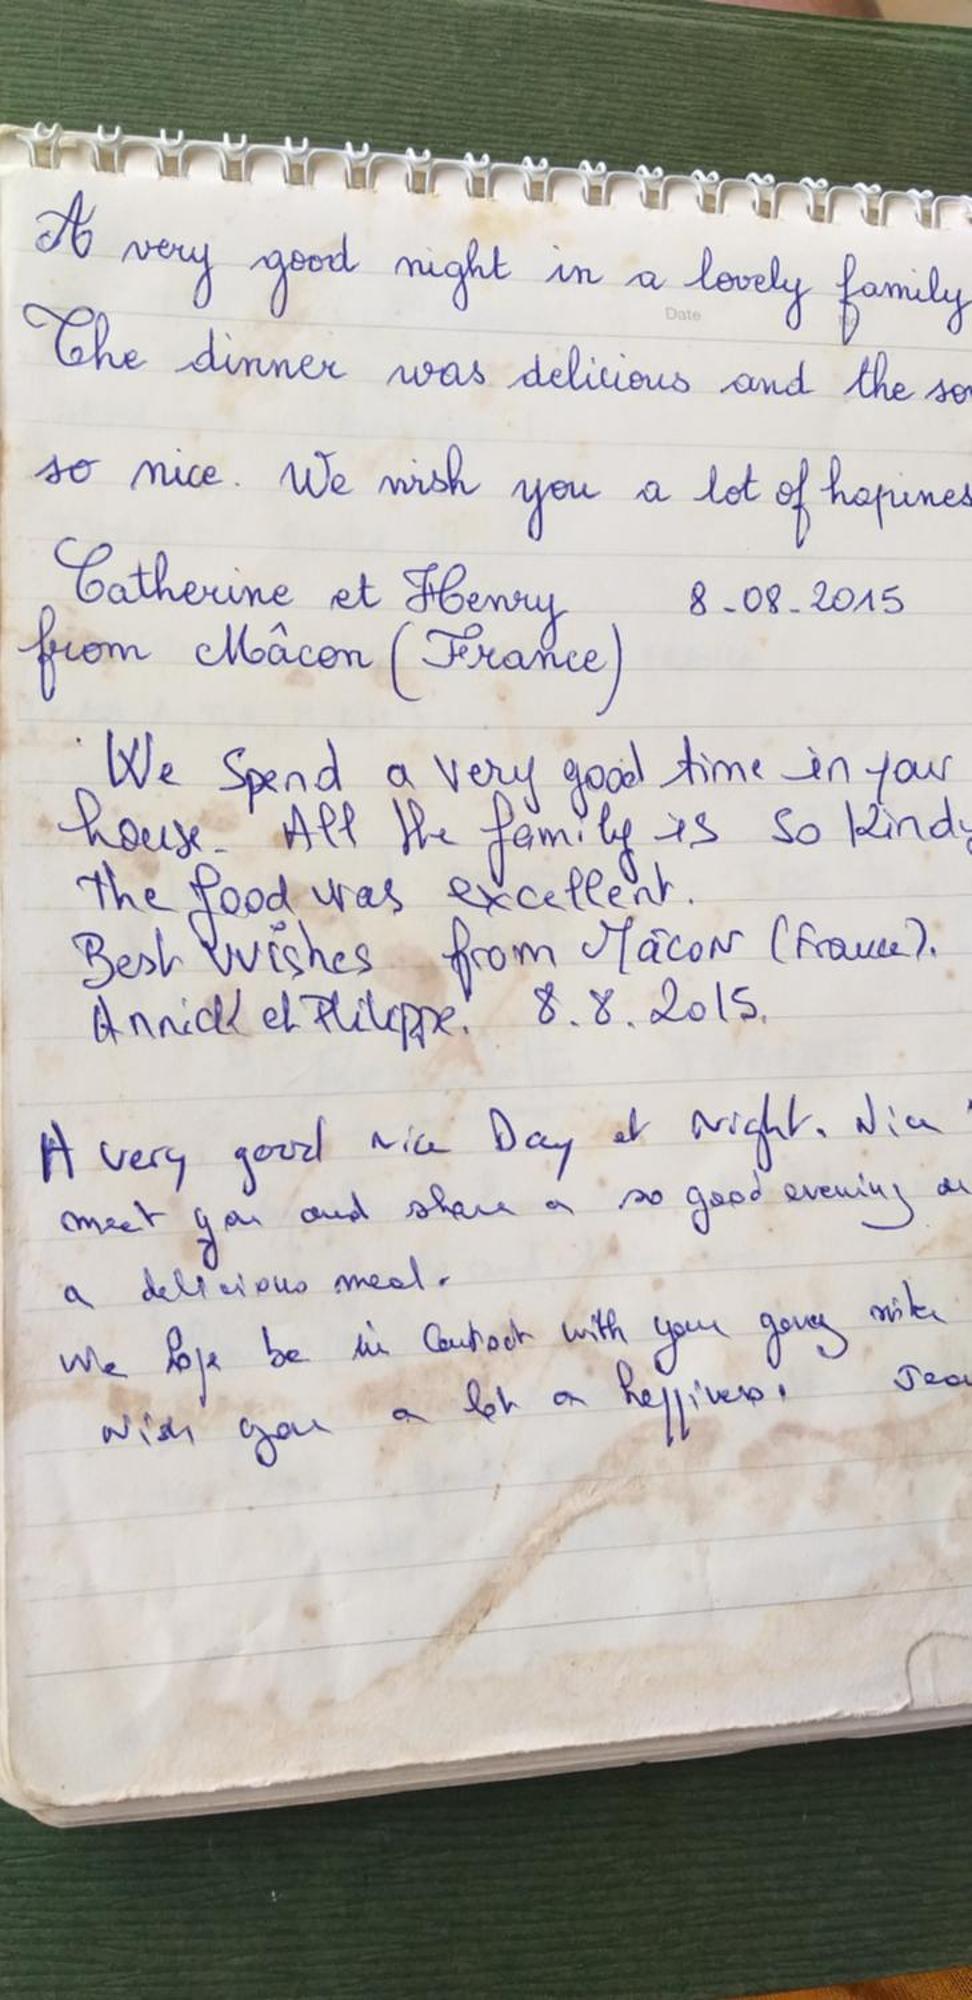 A very good night in a lovely family
Date
The dinner was delicious and the
so nice. We wish you a lot of hapines
Catherine et Henry 8-08-2015
from Mâcon (France)
We Spend a very good time in your
house. All the family is so kindy
the food was excellent.
Best Wishes from Mâcon (France).
Annick et Philippe. 8.8.2015.
A very good nice Day et Night. Nice
meet you and share a so good evening
a delicious meal.
We hope be in Contact with your
wish you a lot a happiness.